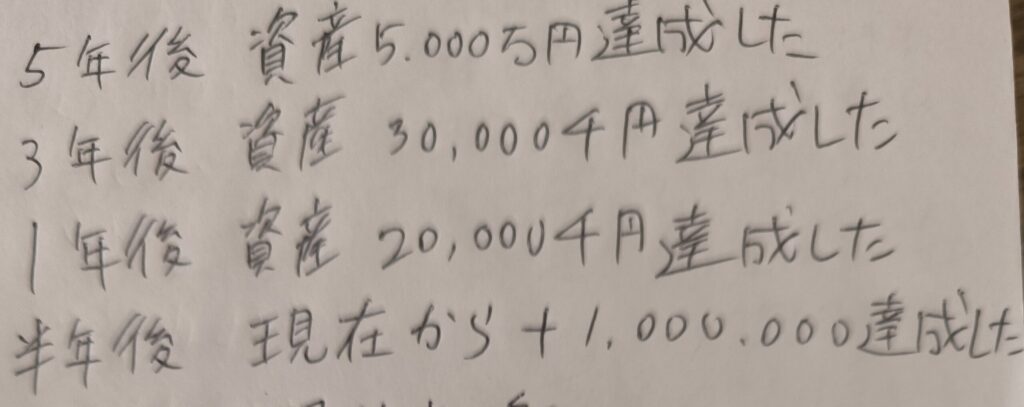 5年後 資産5.000万円達成した
3年後 資産 30,000千円達成した
1年後 資産 20,000千円達成した
半年後 現在から+1.000.000達成した